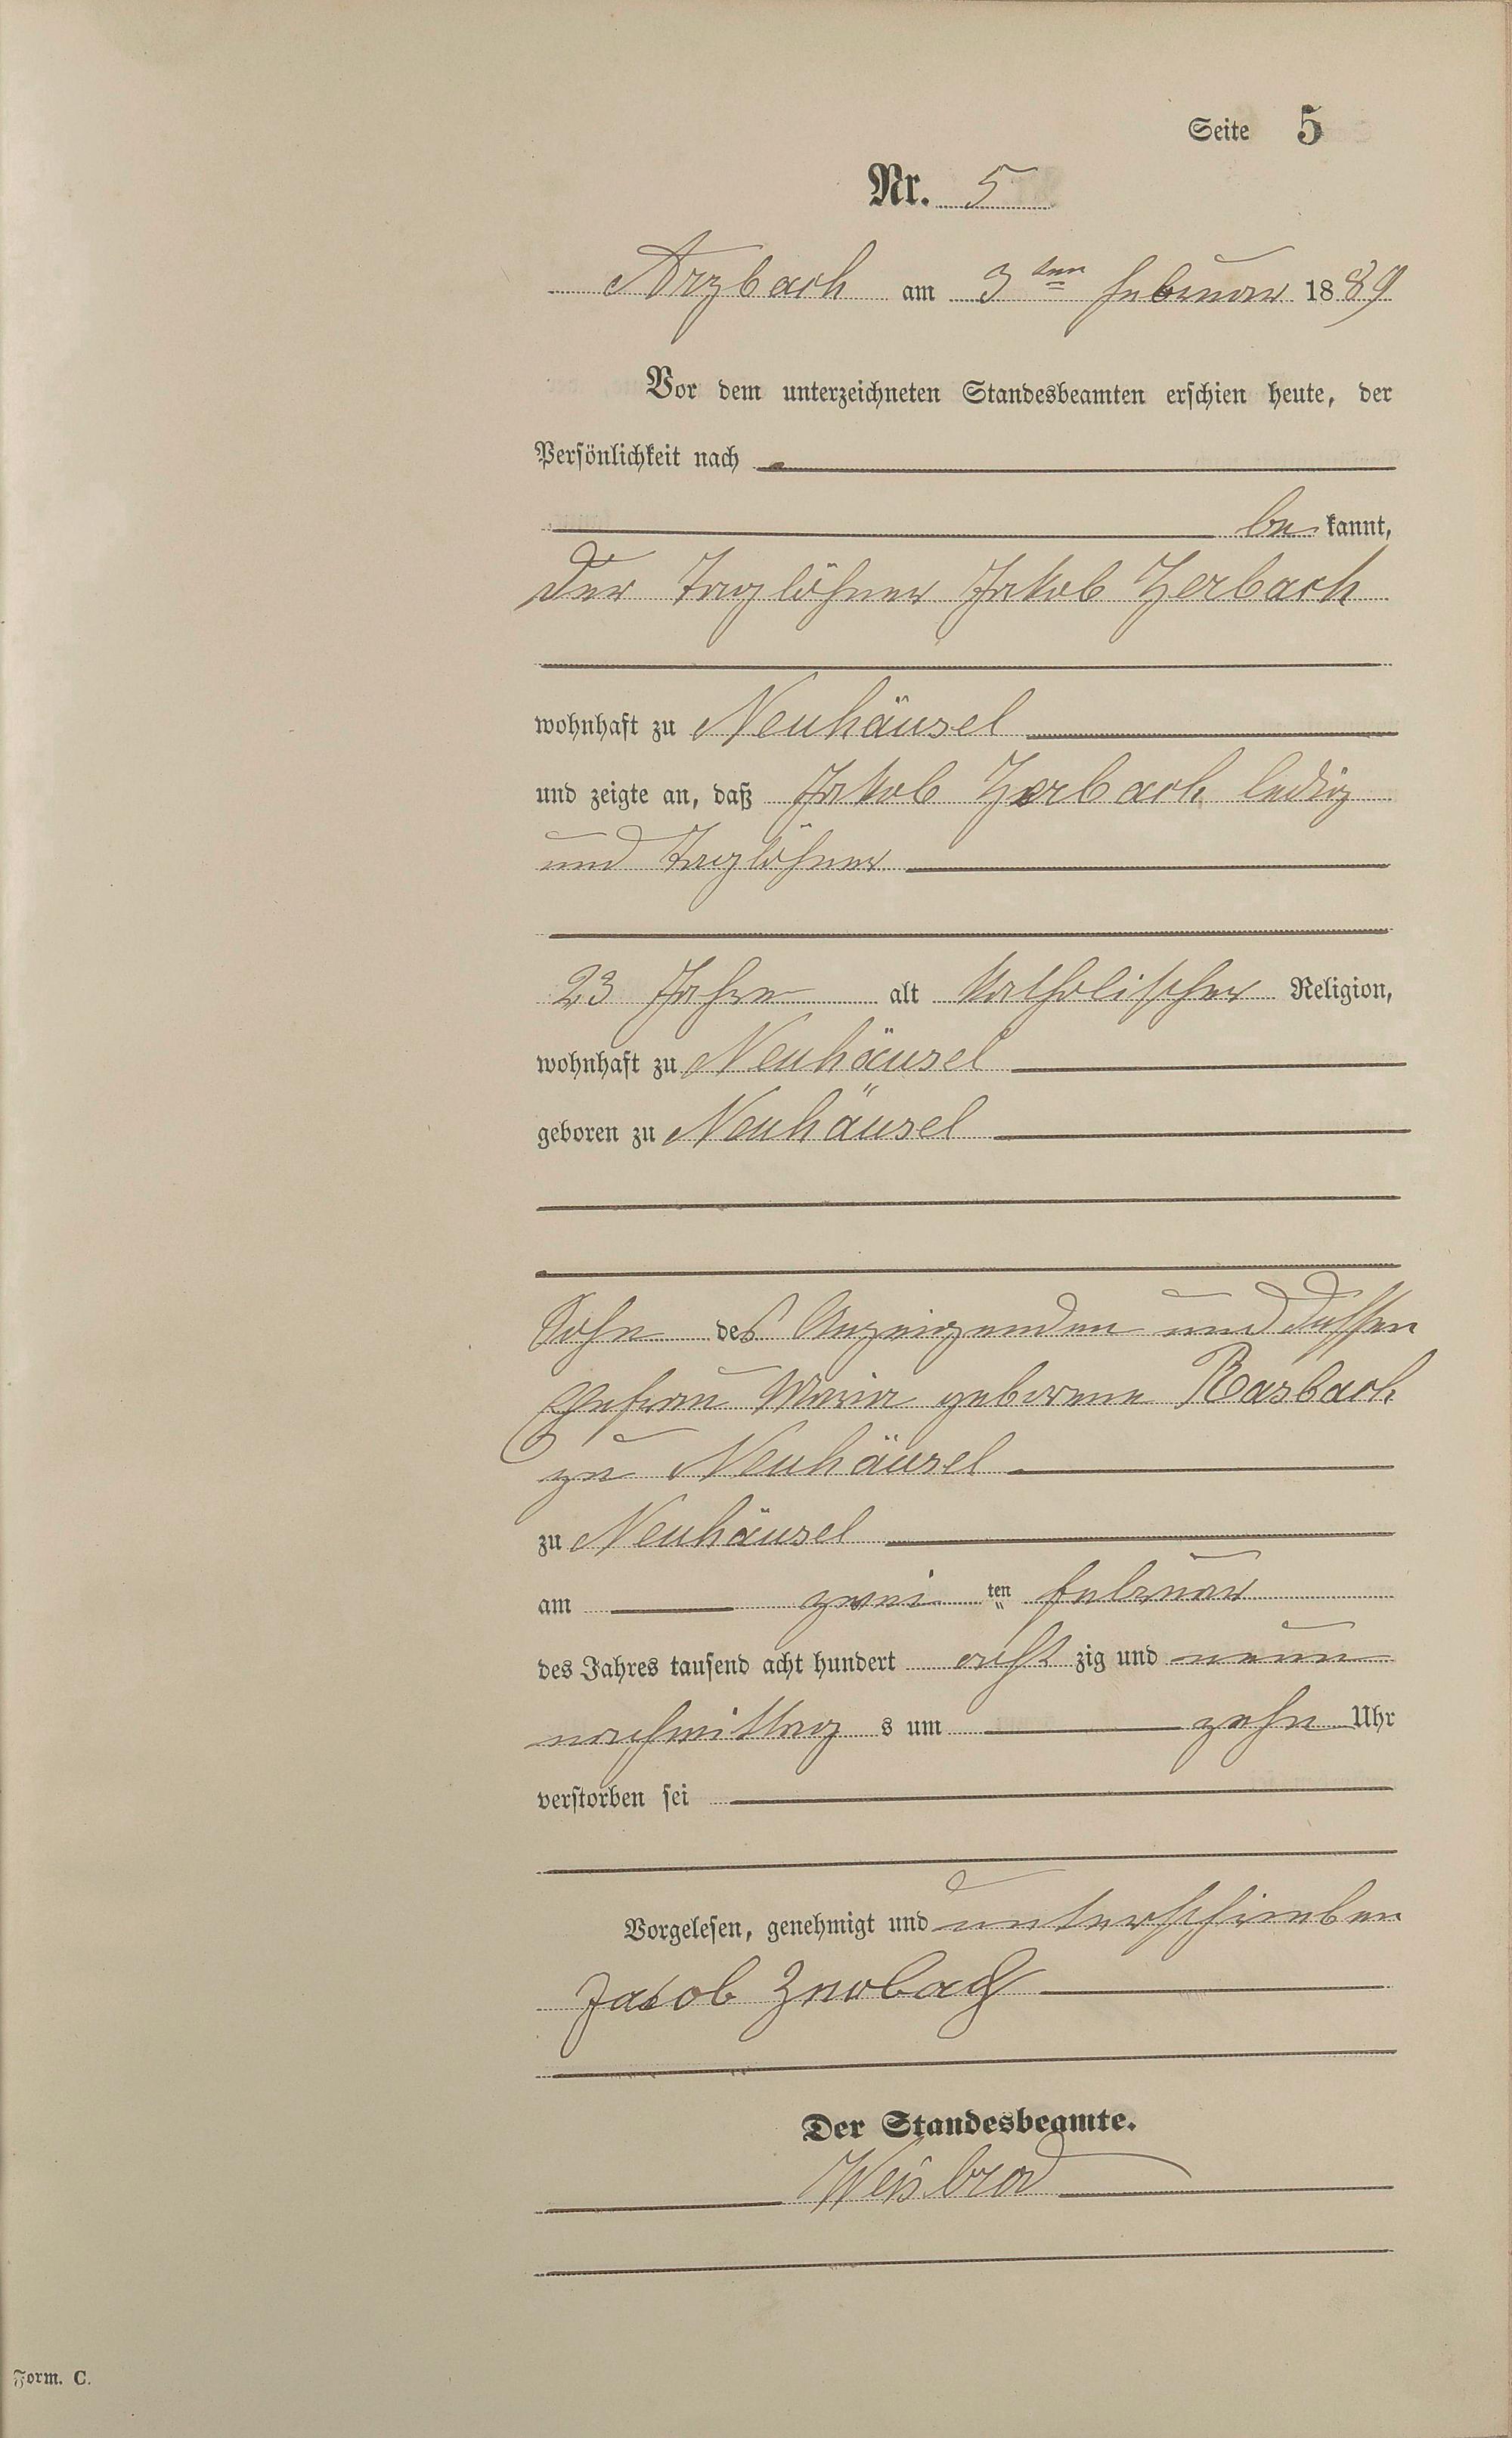 Seite 5
Nr. 5
Arzbach am 3ten Februar 1889
Vor dem unterzeichneten Standesbeamten erschien heute, der
Persönlichkeit nach
be kannt,
der Taglöhner Jakob Zerbach
wohnhaft zu Neuhäusel
und zeigte an, daß Jakob Zerbach ledig
und Taglöhner
23 Jahre alt katholischer Religion,
wohnhaft zu Neuhäusel
geboren zu Neuhäusel
Sohn des Anzeigenden und dessen
Ehefrau Maria geborene Rasbach
zu Neuhäusel
zu Neuhäusel
am zwei ten Februar
des Jahres tausend acht hundert acht zig und neun
nachmittag s um zehn Uhr
verstorben sei
Vorgelesen, genehmigt und unterschrieben
Jacob Zerbach
Der Standesbeamte.
Weisbrod
Form. C.